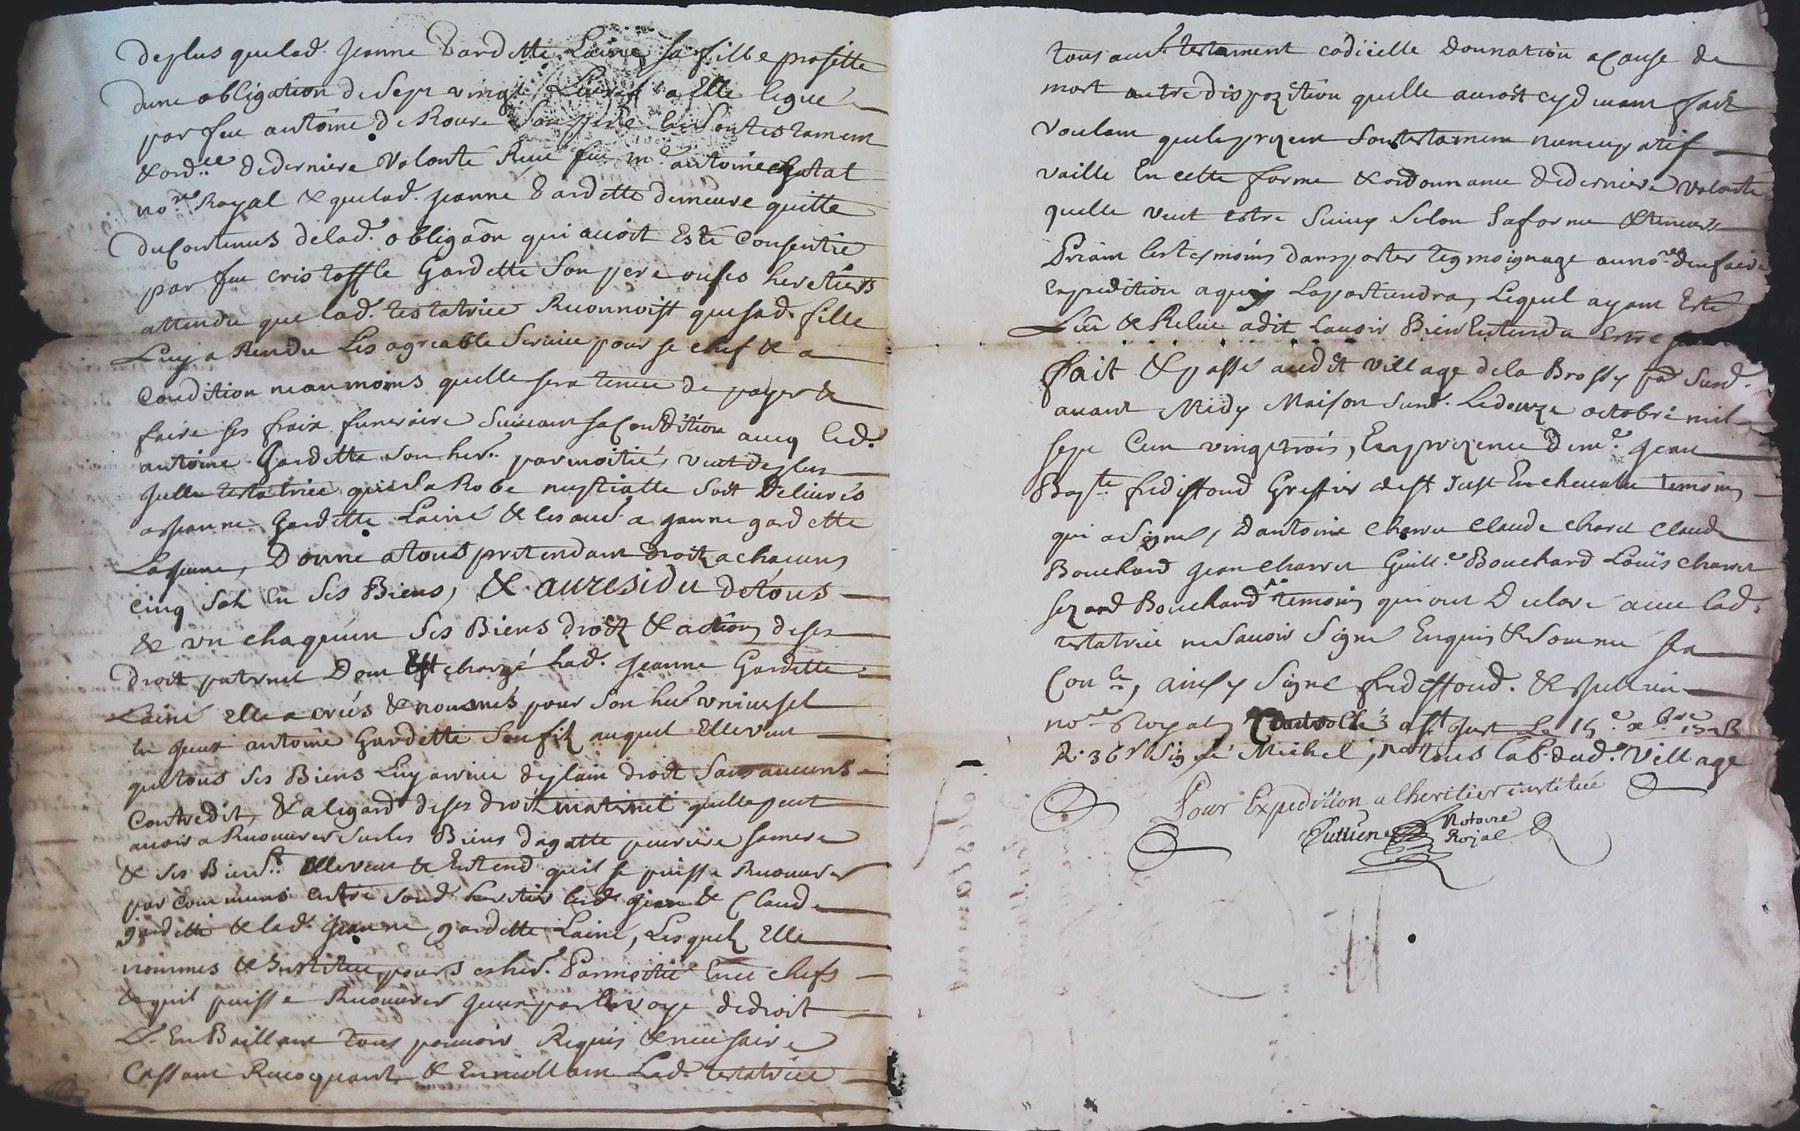 deplus quelad. Jeanne Gardette Lainé sa fille profitte
dune obligation de Sept vingt Livres a Elle legué
par feu antoine de Roure Son pere en Son testament
& ord.ce de derniere Volonté Reçu feu m.e antoine
no.re Royal & quelad. Jeanne Gardette demeure quitte
du Contenus de lad. obligaõn qui avoit Esté Consentie
par feu cristoffle Gardette Son pere ou ses heretiers
attendu que lad. testatrice Reconnoist que sad. fille
Luy a Rendu Les agreable Service pour se chef & a
Condition neanmoins quelle sera tenue de payer &
faire ses fraix funeraire Suivant sa Condition avecq led.
antoine Gardette Son her. par moitié, veut deplus
Jcelle testatrice que Sa Robe nuptialle Soit Delivrés
a Jeanne Gardette Lainé & a Janne gardette
La Jeune, Donne a tous pretendant Droit a chacuns
cinq Sol En Ses Biens, & au residu de tous
& un chaqu'un Ses Biens droit & actions de ses
droit paternel Dont Est chargé Lad. Jeanne Gardette
Lainé Elle a créés & nommés pour Son her. universel
antoine Gardette Son fils auquel Elle veut
que tous Ses Biens Luy arrive de plain droit Sans aucuns
Contredit, & a legard de ses droit maternel quelle peut
avoir a Recouvrer Sur les Biens dagatte Sa mere
& ses Biens Elle veut & Entend quil se puisse Recouvrer
par Communs entre Sond. heritier led. Jean & Claude
gardette & lad. Jeanne gardette Lainé, Lesquels Elle
nommes & Institue pour ses her. Par moitié En ce chefs
& quil puisse Recouvrer Jceux par la voye de droit
L. En Baillant tous pouvoir Requis & necessaire
Cassant Revocquant & Annullant Lad. testatrice
tous aut. testament codicille Donnation a Cause de
mort autre dispozition quelle auroit cy devant fait
Voulant que le prezent Son testament nuncupatif
vaille En cette forme & ordonnance de derniere volonté
quelle veut estre Suivy Selon Sa forme & teneur
Priant les tesmoins den porter tesmoignage au no.re den faire
Expedition a quy Lapartiendra, Lequel ayant Esté
Lue & Relue a dit Lavoir Bien Entendu
fait & passé audit village de la Brosse par Susd.
avant Midy Maison Susd. Le douze octobre mil
sept Cent vingt trois, En la prezence de m.e Jean
Bap.te fredifond Greffier de St Just En chevalet temoins
qui a Signé, D'antoine Charret Claude Charet Claude
Bouchard Jean Charret Guill.e Bouchard Loüis Charret
Bouchard temoins qui ont Declaré avec lad.
testatrice ne Savoir Signe Enquis & Somme sea
Con.lé, ainsy Signé fredifond. &
no.re Royal Controllé a St Just Le 15.e
R. 36s Signé Michel, P. tous Lab dud. Village
Pour Expedition a lheritier institué
Notaire
Rojal